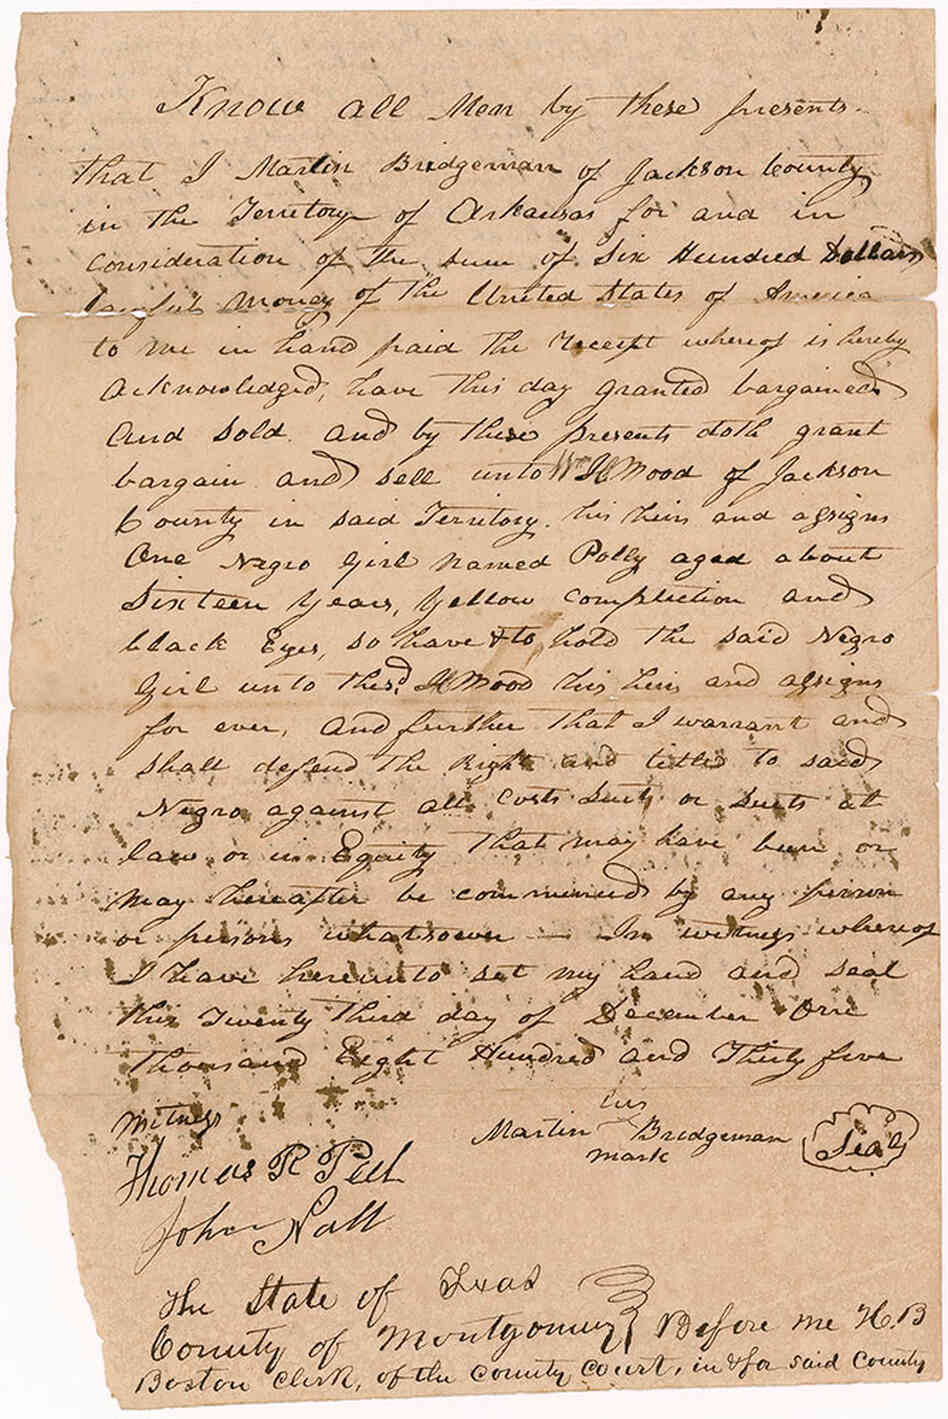 Know all Men by these presents
that I Martin Bridgeman of Jackson County
in the Territory of Arkansas for and in
consideration of the sum of Six Hundred Dollars
lawful Money of the United States of America
to me in hand paid the Receipt whereof is hereby
acknowledged, have this day granted bargained
and sold. and by these presents doth grant
bargain and sell unto Wm H Wood of Jackson
County in said Territory. his heirs and assigns
One Negro Girl named Polly aged about
Sixteen Years, Yellow Complection and
black Eyes, so have & to hold the said Negro
Girl unto the sd. H Wood his heirs and assigns
for ever, and further that I warrant and
shall defend the Right and title to said
Negro against all Costs Suit or suits at
law or in Equity that may have been or
may hereafter be commenced by any person
or persons whatsoever — In witness whereof
I have hereunto set my hand and seal
this Twenty third day of December One
thousand Eight Hundred and Thirty five
Witness
his
Martin Bridgeman Seal
mark
Thomas R Peel
John
The State of Texas
County of Montgomery } Before me H. B
Boston Clerk, of the County Court, in & for said County